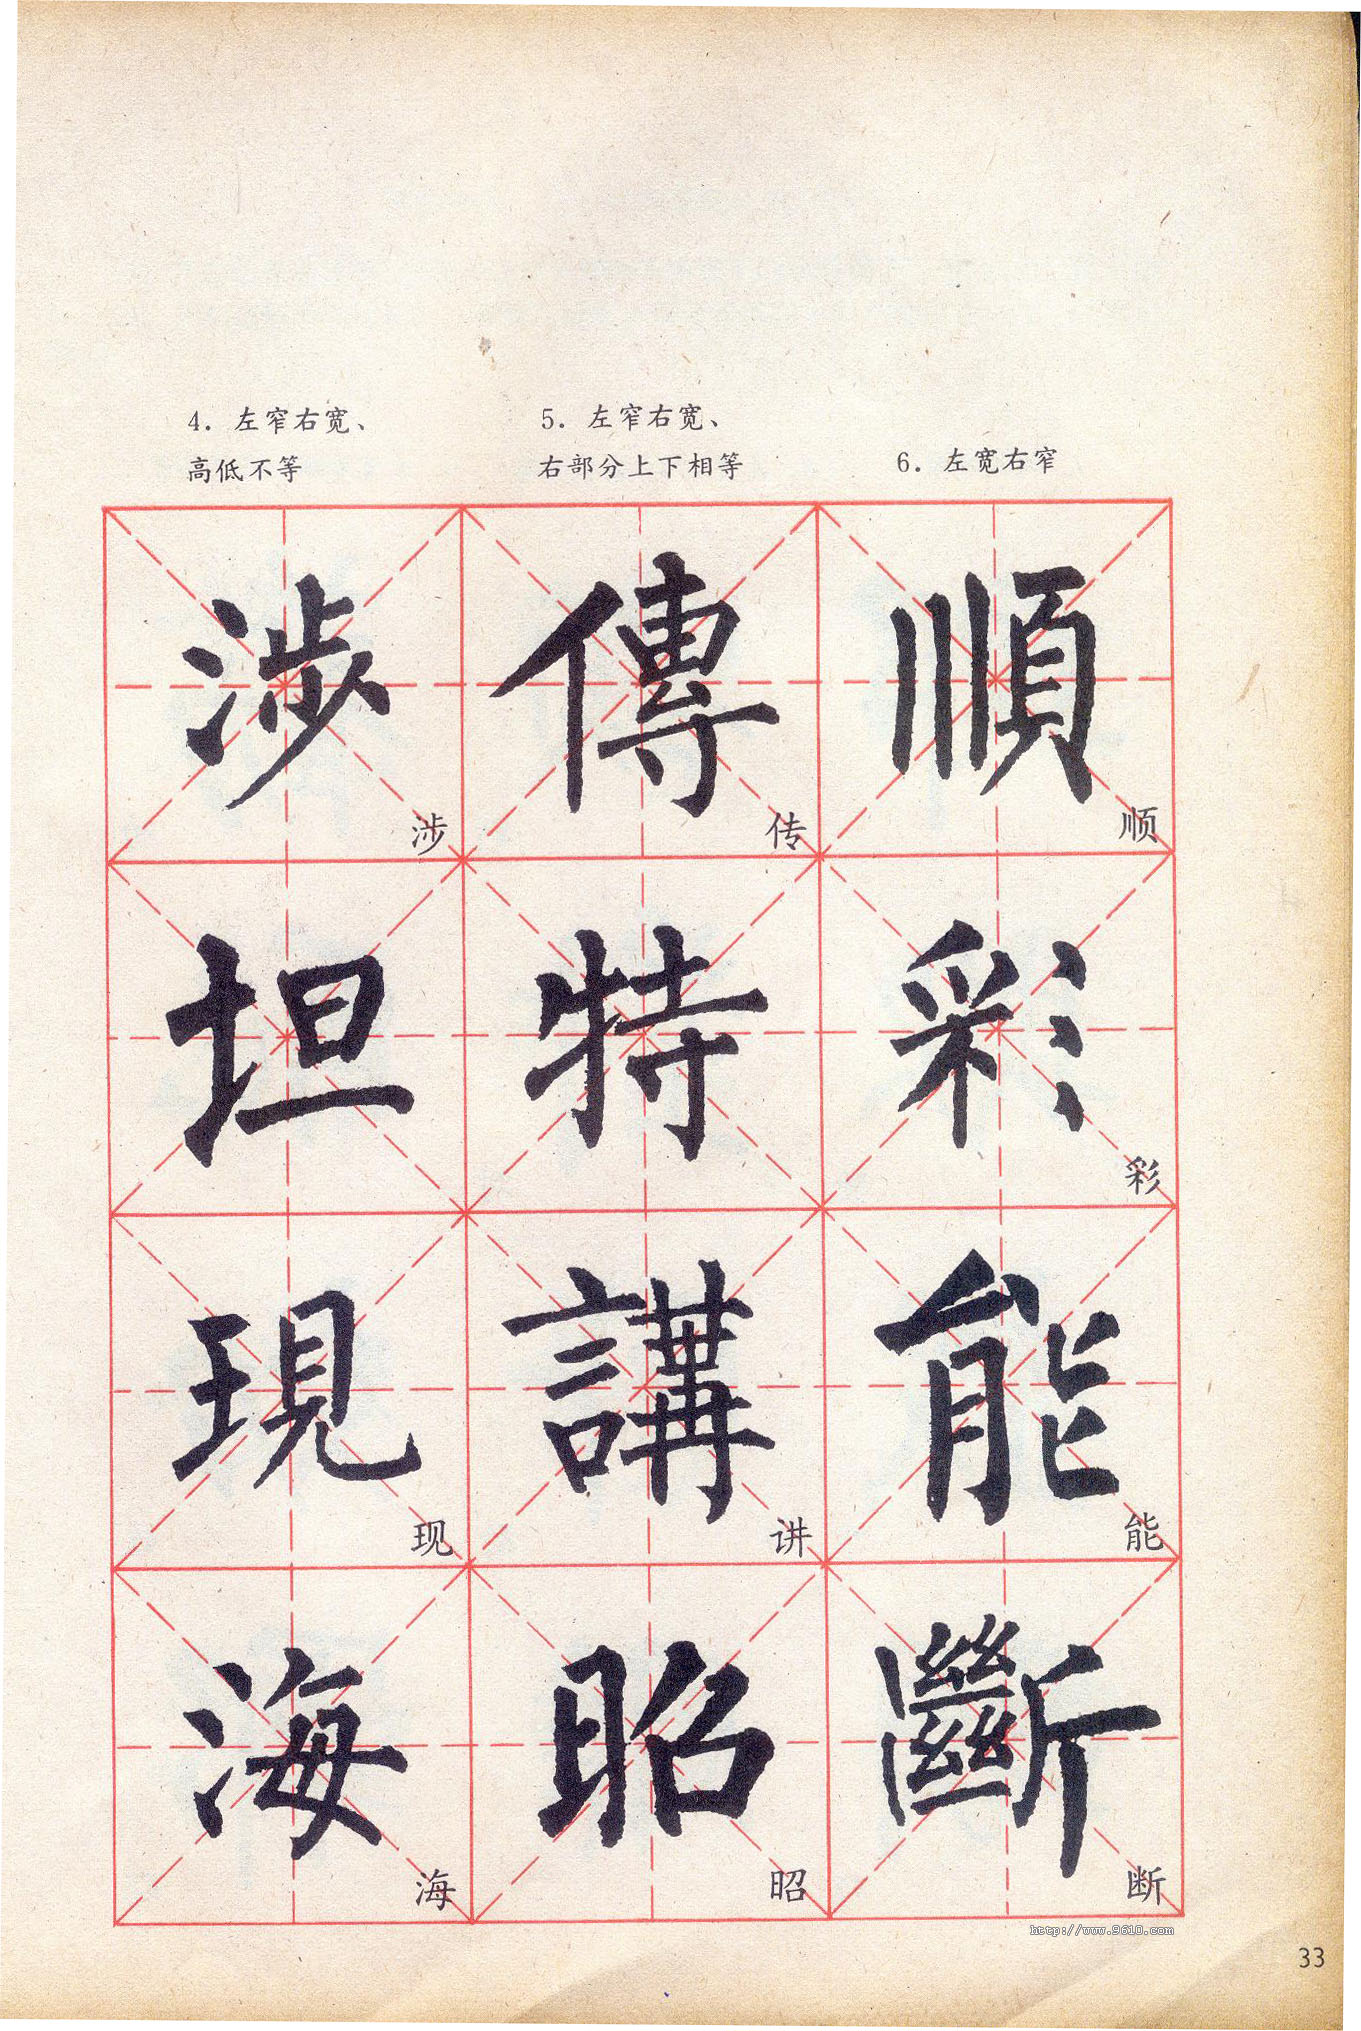 4. 左窄右宽、
高低不等
5. 左窄右宽、
右部分上下相等
6. 左宽右窄
涉 傳 順
涉 传 顺
坦 特 彩
彩
現 講 能
现 讲 能
海 昭 斷
海 昭 断
http://www.9610.com
33